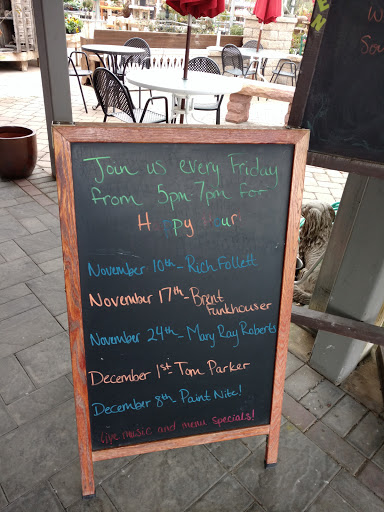 Join us every Friday
from 5pm-7pm for
Happy Hour
November 10th - Rich Follett
November 17th - Brent
Funkhouser
November 24th - Mary Ray Roberts
December 1st Tom Parker
December 8th - Paint Nite!
live music and menu specials!